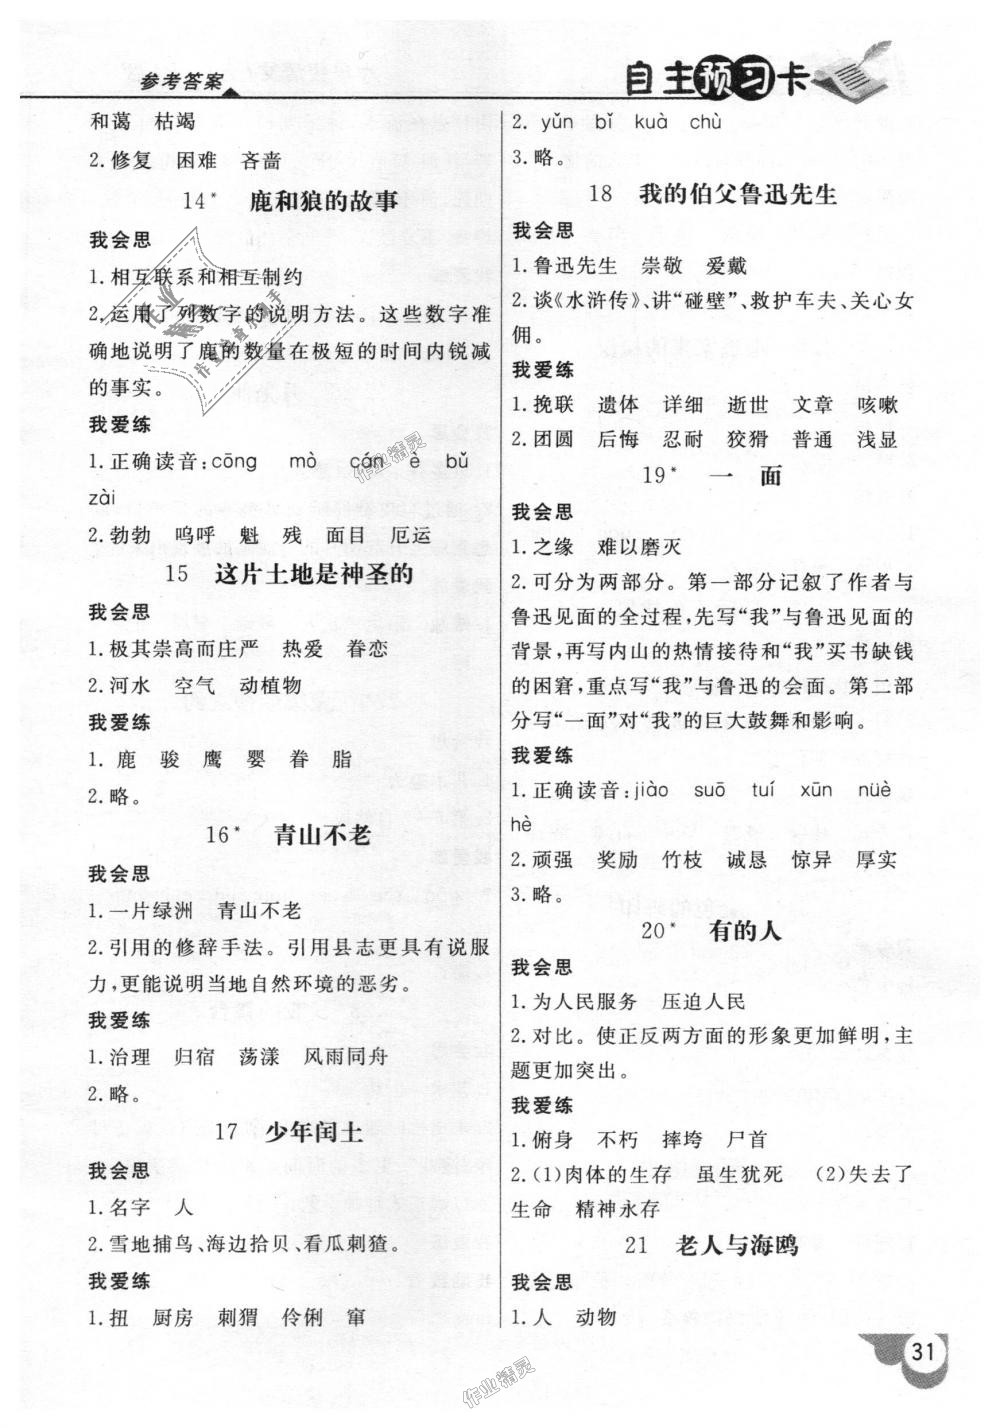 参考答案
自主预习卡
和蔼　枯竭
2.修复　困难　吝啬
14*　鹿和狼的故事
我会思
1.相互联系和相互制约
2.运用了列数字的说明方法。这些数字准
确地说明了鹿的数量在极短的时间内锐减
的事实。
我爱练
1.正确读音:cōng　mò　cán　è　bǔ
zài
2.勃勃　呜呼　魁　残　面目　厄运
15　这片土地是神圣的
我会思
1.极其崇高而庄严　热爱　眷恋
2.河水　空气　动植物
我爱练
1.鹿　骏　鹰　婴　眷　脂
2.略。
16*　青山不老
我会思
1.一片绿洲　青山不老
2.引用的修辞手法。引用县志更具有说服
力,更能说明当地自然环境的恶劣。
我爱练
1.治理　归宿　荡漾　风雨同舟
2.略。
17　少年闰土
我会思
1.名字　人
2.雪地捕鸟、海边拾贝、看瓜刺猹。
我爱练
1.扭　厨房　刺猬　伶俐　窜
2.yǔn　bǐ　kuà　chù
3.略。
18　我的伯父鲁迅先生
我会思
1.鲁迅先生　崇敬　爱戴
2.谈《水浒传》、讲“碰壁”、救护车夫、关心女
佣。
我爱练
1.挽联　遗体　详细　逝世　文章　咳嗽
2.团圆　后悔　忍耐　狡猾　普通　浅显
19*　一　面
我会思
1.之缘　难以磨灭
2.可分为两部分。第一部分记叙了作者与
鲁迅见面的全过程,先写“我”与鲁迅见面的
背景,再写内山的热情接待和“我”买书缺钱
的困窘,重点写“我”与鲁迅的会面。第二部
分写“一面”对“我”的巨大鼓舞和影响。
我爱练
1.正确读音:jiào　suō　tuí　xūn　nüè
hè
2.顽强　奖励　竹枝　诚恳　惊异　厚实
3.略。
20*　有的人
我会思
1.为人民服务　压迫人民
2.对比。使正反两方面的形象更加鲜明,主
题更加突出。
我爱练
1.俯身　不朽　摔垮　尸首
2.(1)肉体的生存　虽生犹死　(2)失去了
生命　精神永存
21　老人与海鸥
我会思
1.人　动物
31
作业精灵
作业精灵